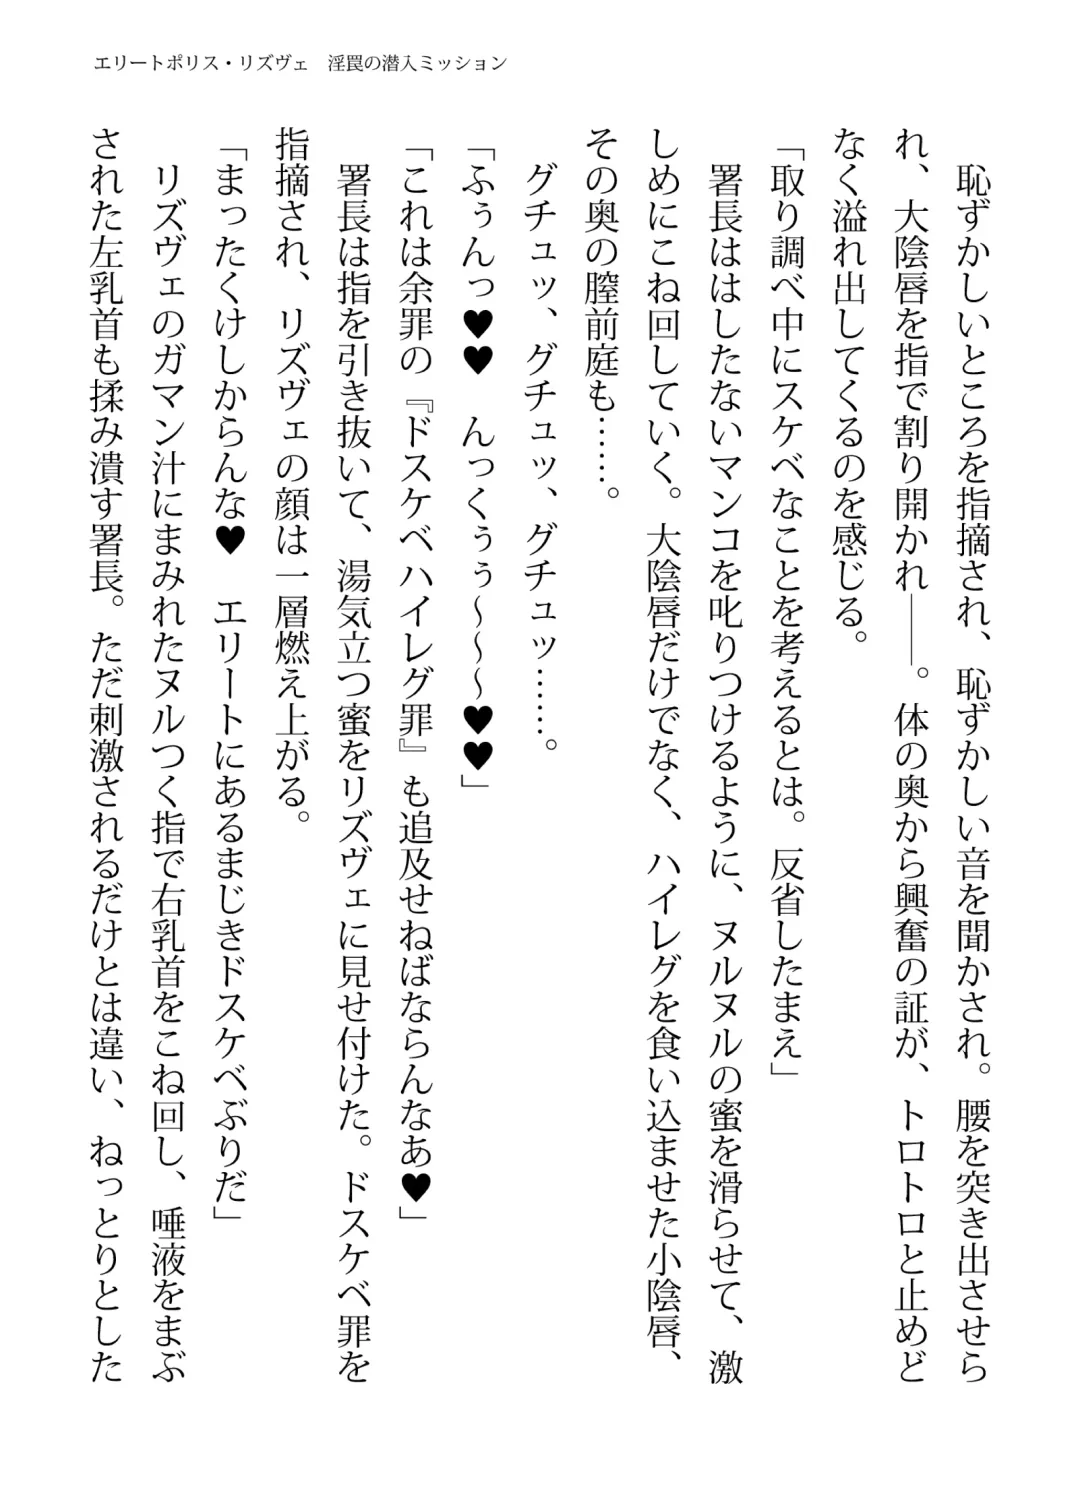 エリートポリス・リズヴェ　淫罠の潜入ミッション
　恥ずかしいところを指摘され、恥ずかしい音を聞かされ。腰を突き出させら
れ、大陰唇を指で割り開かれ――。体の奥から興奮の証が、トロトロと止めど
なく溢れ出してくるのを感じる。
「取り調べ中にスケベなことを考えるとは。反省したまえ」
　署長ははしたないマンコを叱りつけるように、ヌルヌルの蜜を滑らせて、激
しめにこね回していく。大陰唇だけでなく、ハイレグを食い込ませた小陰唇、
その奥の膣前庭も……。
　グチュッ、グチュッ、グチュッ……。
「ふぅんっ♥♥　んっくぅぅ～～～♥♥」
「これは余罪の『ドスケベハイレグ罪』も追及せねばならんなあ♥」
　署長は指を引き抜いて、湯気立つ蜜をリズヴェに見せ付けた。ドスケベ罪を
指摘され、リズヴェの顔は一層燃え上がる。
「まったくけしからんな♥　エリートにあるまじきドスケベぶりだ」
　リズヴェのガマン汁にまみれたヌルつく指で右乳首をこね回し、唾液をまぶ
された左乳首も揉み潰す署長。ただ刺激されるだけとは違い、ねっとりとした